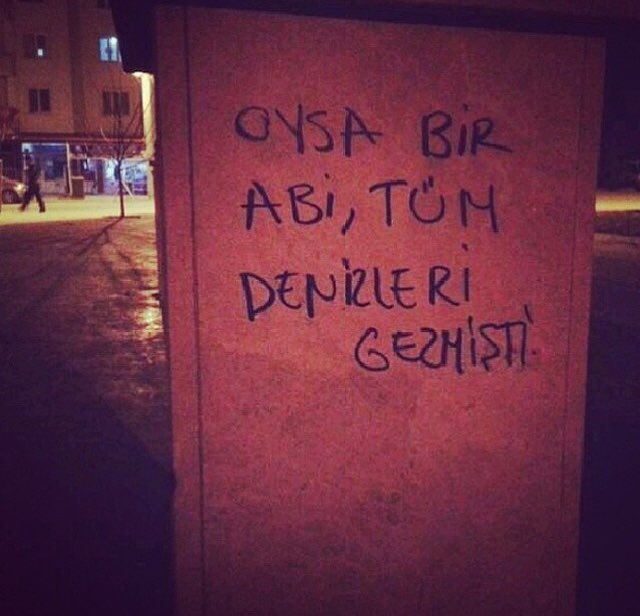 OYSA BİR
ABİ, TÜM
DENİZLERİ
GEZMİŞTİ.